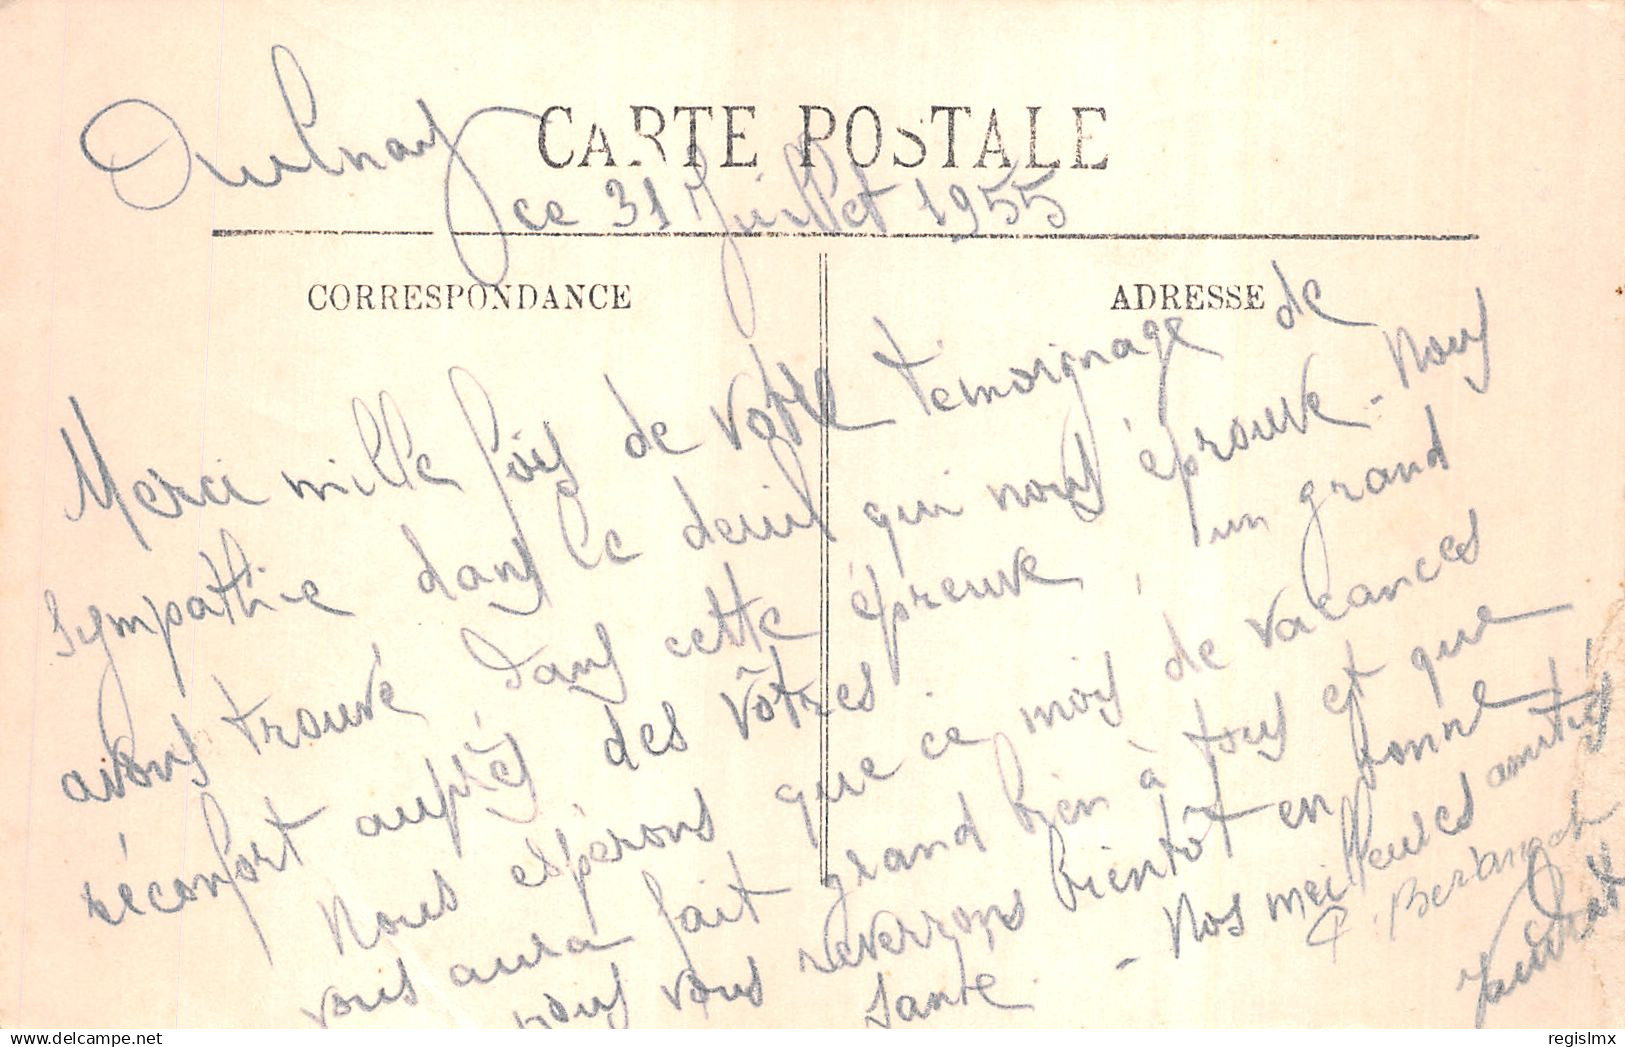 CARTE POSTALE
Aulnay ce 31 Juillet 1955
CORRESPONDANCE
ADRESSE
Merci mille fois de votre témoignage de
sympathie dans le deuil qui nous éprouve - Nous
avons trouvé, dans cette épreuve, un grand
réconfort auprès des vôtres
Nous espérons que ce mois de vacances
vous aura fait grand bien à tous et que
nous vous reverrons bientôt en bonne
santé. - Nos meilleures amitiés
regislmx